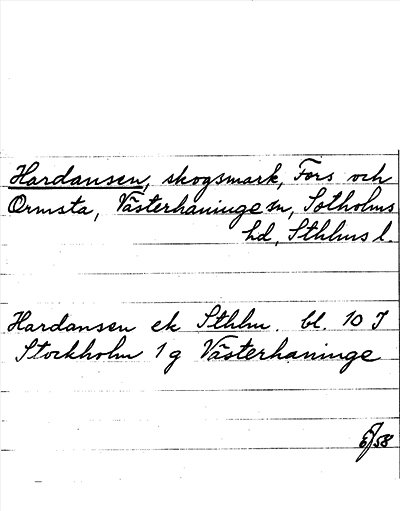 Hardansen, skogsmark, Fors och
Ormsta, Västerhaninge sn, Sotholms
hd, Sthlms l.
Hardansen ek Sthlm. bl. 10 J
Stockholm 1g Västerhaninge
58